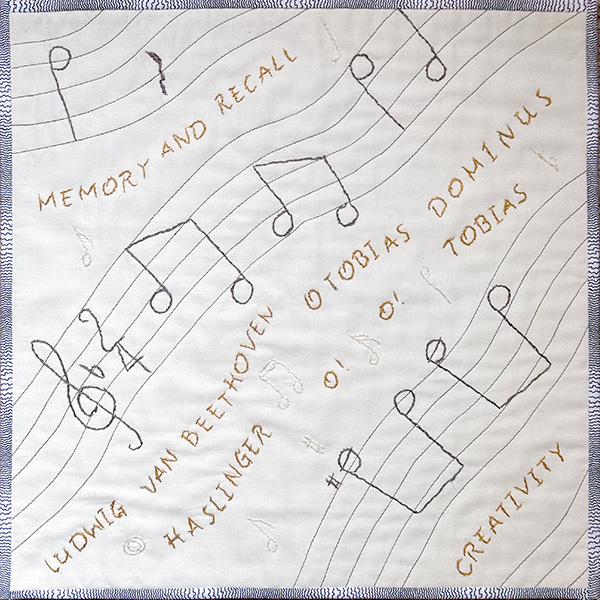 MEMORY AND RECALL
OTOBIAS DOMINUS
O! TOBIAS
LUDWIG VAN BEETHOVEN
O!
HASLINGER
2/4
CREATIVITY